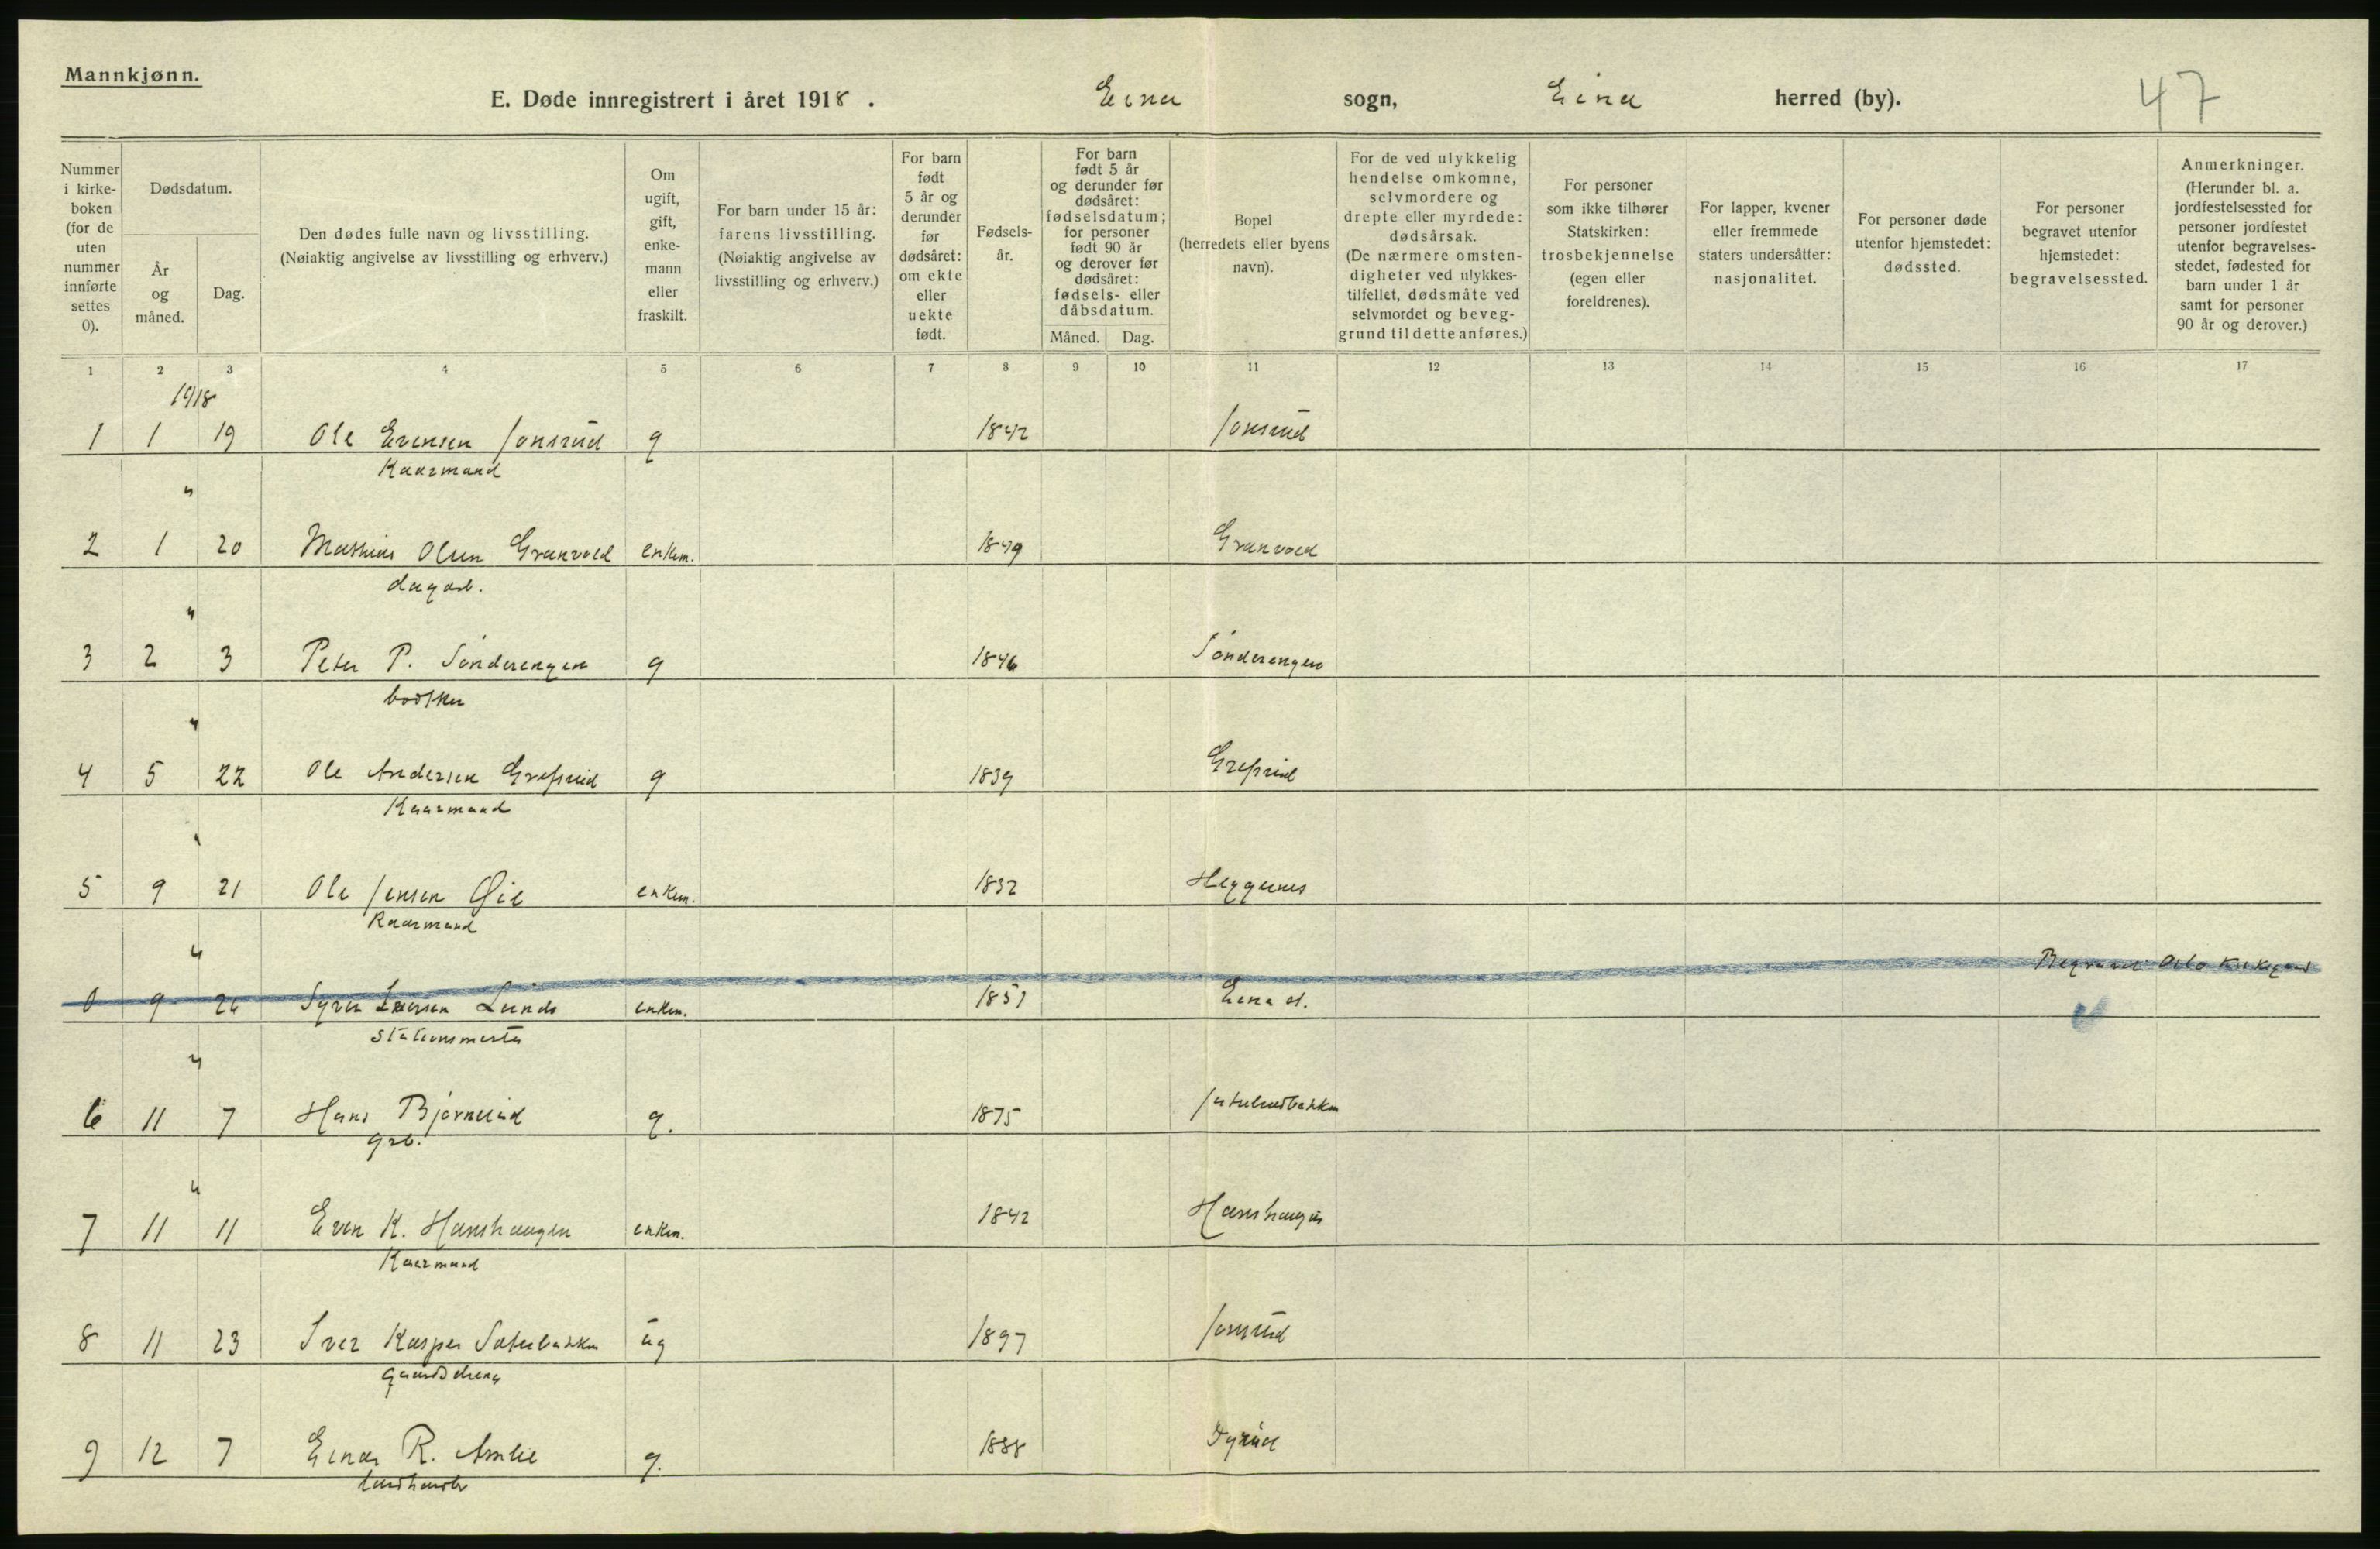 Mannkjønn.
E. Døde innregistrert i året 1918. Eina sogn, Eina herred (by). 47
Nummer i kirke- boken (for de uten nummer innførte settes 0).
Dødsdatum.
År og måned.
Dag.
Den dødes fulle navn og livsstilling. (Nøiaktig angivelse av livsstilling og erhverv.)
Om ugift, gift, enke- mann eller fraskilt.
For barn under 15 år: farens livsstilling. (Nøiaktig angivelse av livsstilling og erhverv.)
For barn født 5 år og derunder før dødsåret: om ekte eller uekte født.
Fødsels- år.
For barn født 5 år og derunder før dødsåret: fødselsdatum; for personer født 90 år og derover før dødsåret: fødsels- eller dåbsdatum.
Måned. Dag.
Bopel (herredets eller byens navn).
For de ved ulykkelig hendelse omkomne, selvmordere og drepte eller myrdede: dødsårsak. (De nærmere omsten- digheter ved ulykkes- tilfellet, dødsmåte ved selvmordet og beveg- grund til dette anføres.)
For personer som ikke tilhører Statskirken: trosbekjennelse (egen eller foreldrenes).
For lapper, kvener eller fremmede staters undersåtter: nasjonalitet.
For personer døde utenfor hjemstedet: dødssted.
For personer begravet utenfor hjemstedet: begravelsessted.
Anmerkninger. (Herunder bl. a. jordfestelsessted for personer jordfestet utenfor begravelses- stedet, fødested for barn under 1 år samt for personer 90 år og derover.)
1 2 3 4 5 6 7 8 9 10 11 12 13 14 15 16 17
1918
1 1 19 Ole Evensen Jonsrud g 1842 Jonsrud
Kaarmand
"
2 1 20 Mathias Olsen Granvold enkem. 1849 Granvold
dagarb.
"
3 2 3 Peter P. Sønderengen g 1846 Sønderengen
bødker
"
4 5 22 Ole Andersen Grefsrud g 1839 Grefsrud
Kaarmand
"
5 9 21 Ole Jensen Øie enkem. 1832 Heggenes
Kaarmand
"
0 9 26 Syver Iversen Lunds enkem. 1851 Eina st. Begravet Oslo Kirkegaard
Stationsmester
"
6 11 7 Hans Bjørnerud g. 1875
grb.
"
7 11 11 Even K. Hanshaugen enkem. 1842 Hanshaugen
Kaarmand
8 11 23 Iver Kasper Sæterbakken ug 1897 Jonsrud
gaardsdreng
9 12 7 Einar R. Amlie g. 1888 Dyrud
landhandler